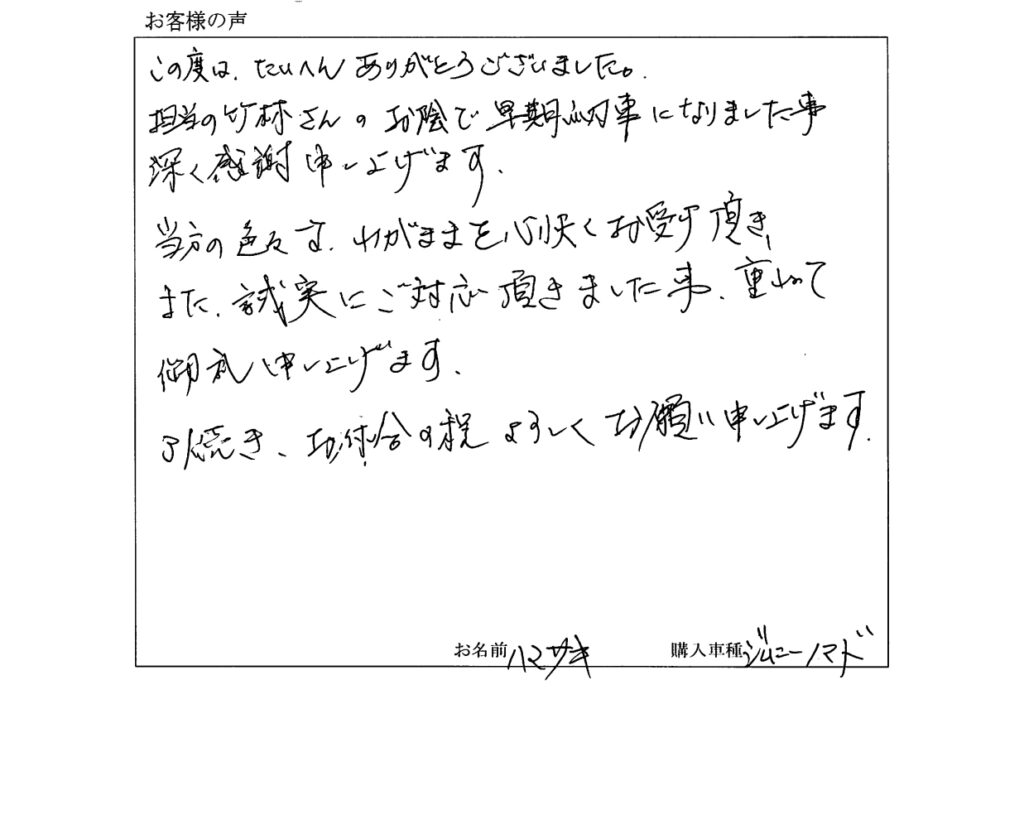 お客様の声
この度は、たいへんありがとうございました。
担当の竹林さんのお陰で早期納車になりました事
深く感謝申し上げます.
当方の色々な、わがままを心快くお受け頂き、
また、誠実にご対応頂きました事、重ねて
御礼申し上げます.
引続き、お付合の程よろしくお願い申し上げます.
お名前 ハマサキ 購入車種 ジムニーノマド